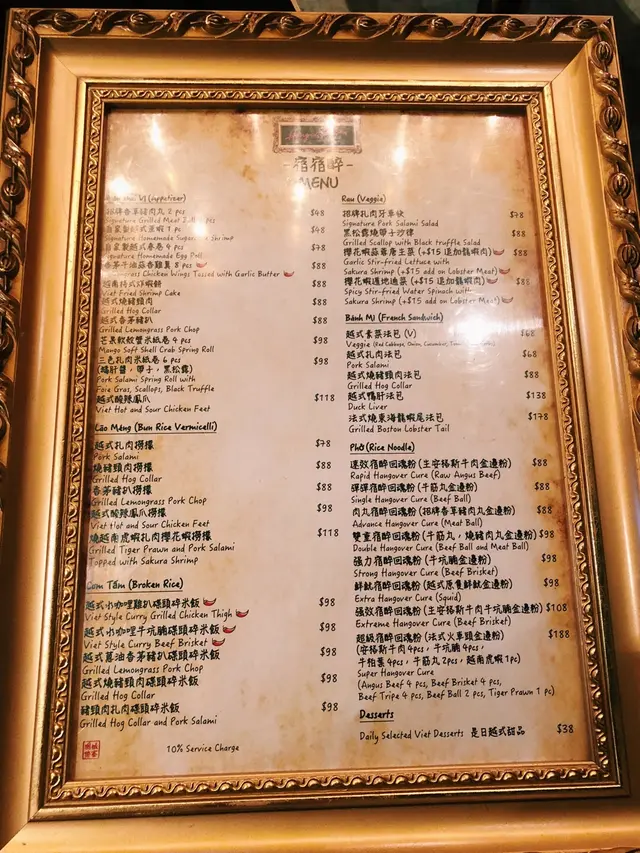 -宿宿醉-
MENU
(Appetizer)
招牌香草豬肉丸 2 pcs $48
Signature Grilled Meat
$48
Signature Homemade Shrimp
自家製越式春卷 4 pcs $78
Signature Homemade Egg Roll
香茅牛油蒜香雞翼 8 pcs $88
Chicken Wings Tossed with Garlic Butter
越南特式炸蝦餅 $88
Viet Fried Shrimp Cake
越式燒豬頸肉 $88
Grilled Hog Collar
越式香茅豬扒 $88
Grilled Lemongrass Pork Chop
芒果軟殼蟹米紙卷 4 pcs $98
Mango Soft Shell Crab Spring Roll
三色扎肉米紙卷 6 pcs $98
(鴨肝醬，帶子，黑松露)
Pork Salami Spring Roll with
Foie Gras, Scallops, Black Truffle
越式酸辣鳳爪 $118
Viet Hot and Sour Chicken Feet
Lão Méng (Bun Rice Vermicelli)
越式扎肉撈檬 $78
Pork Salami
燒豬頸肉撈檬 $88
Grilled Hog Collar
香茅豬扒撈檬 $88
Grilled Lemongrass Pork Chop
越式酸辣鳳爪撈檬 $98
Viet Hot and Sour Chicken Feet
燒越南虎蝦扎肉櫻花蝦撈檬 $118
Grilled Tiger Prawn and Pork Salami
Topped with Sakura Shrimp
Com Tấm (Broken Rice)
越式小咖哩雞扒碟頭碎米飯 $98
Viet Style Curry Grilled Chicken Thigh
越式小咖哩牛坑腩碟頭碎米飯 $98
Viet Style Curry Beef Brisket
越式蔥油香茅豬扒碟頭碎米飯 $98
Grilled Lemongrass Pork Chop
越式燒豬頸肉碟頭碎米飯 $98
Grilled Hog Collar
豬頸肉扎肉碟頭碎米飯 $98
Grilled Hog Collar and Pork Salami
10% Service Charge
Rau (Veggie)
招牌扎肉牙車快 $78
Signature Pork Salami Salad
黑松露燒帶子沙律 $88
Grilled Scallop with Black Truffle Salad
櫻花蝦蒜蓉唐生菜 (+$15 追加龍蝦肉) $88
Garlic Stir-fried Lettuce with
Sakura Shrimp (+$15 add on Lobster Meat)
櫻花蝦通菜 (+$15 追加龍蝦肉) $88
Spicy Stir-fried Water Spinach with
Sakura Shrimp (+$15 add on Lobster Meat)
Bánh Mì (French Sandwich)
越式素菜法包 (V) $68
Veggie (Red Cabbage, Onion, Cucumber,
越式扎肉法包 $68
Pork Salami
越式燒豬頸肉法包 $88
Grilled Hog Collar
越式鴨肝法包 $138
Duck Liver
法式燒東海龍蝦尾法包 $178
Grilled Boston Lobster Tail
Phở (Rice Noodle)
速效宿醉回魂粉 (生安格斯牛肉金邊粉) $88
Rapid Hangover Cure (Raw Angus Beef)
彈彈宿醉回魂粉 (牛筋丸金邊粉) $88
Single Hangover Cure (Beef Ball)
肉丸宿醉回魂粉 (招牌香草豬肉丸金邊粉) $88
Advance Hangover Cure (Meat Ball)
雙重宿醉回魂粉 (牛筋丸，燒豬肉丸金邊粉) $98
Double Hangover Cure (Beef Ball and Meat Ball)
強力宿醉回魂粉 (牛坑腩金邊粉) $98
Strong Hangover Cure (Beef Brisket)
鮮魷宿醉回魂粉 (越式原隻鮮魷金邊粉) $98
Extra Hangover Cure (Squid)
強效宿醉回魂粉 (生安格斯牛肉牛坑腩金邊粉) $108
Extreme Hangover Cure (Beef Brisket)
超級宿醉回魂粉 (法式火車頭金邊粉) $188
(安格斯牛肉 4pcs，牛坑腩 4pcs，
牛柏葉 4pcs，牛筋丸 2pcs，越南虎蝦 1pc)
Super Hangover Cure
(Angus Beef 4 pcs, Beef Brisket 4 pcs,
Beef Tripe 4 pcs, Beef Ball 2 pcs, Tiger Prawn 1 pc)
Desserts
Daily Selected Viet Desserts 是日越式甜品 $38